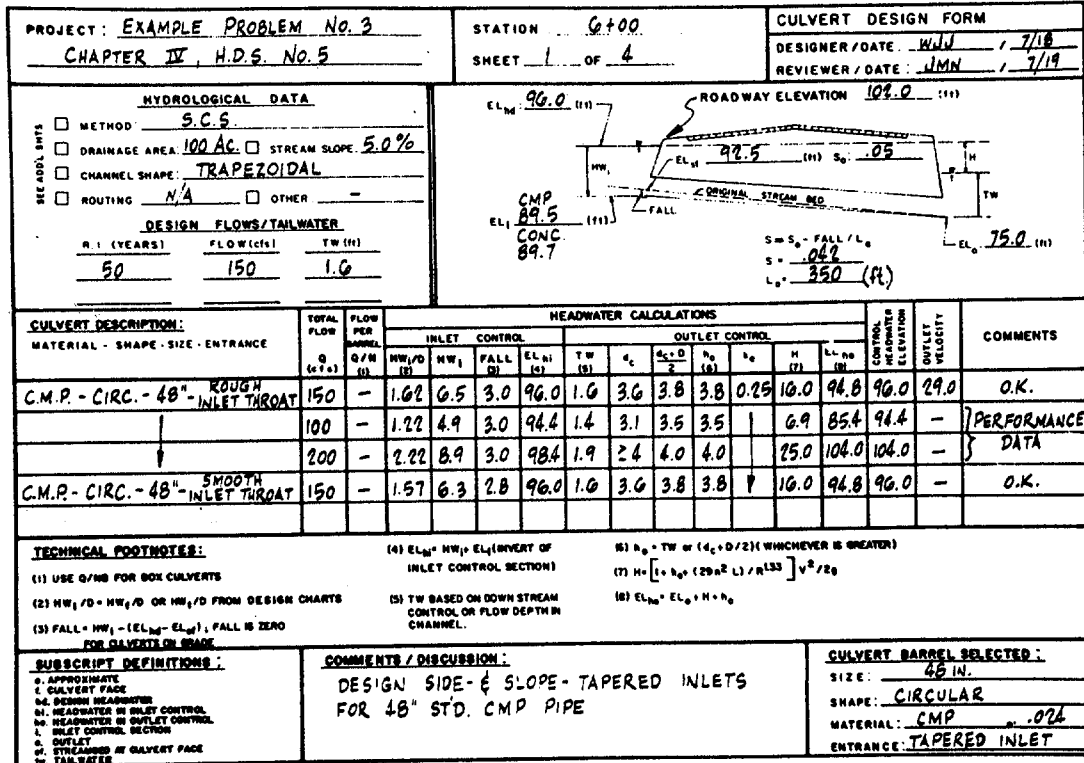 PROJECT: EXAMPLE PROBLEM NO. 3
CHAPTER IV, H.D.S. NO. 5
STATION 6+00
SHEET 1 OF 4
CULVERT DESIGN FORM
DESIGNER / DATE: WJJ / 7/18
REVIEWER / DATE: JMN / 7/19
HYDROLOGICAL DATA
SEE ADD'L SHTS
METHOD: S.C.S.
DRAINAGE AREA: 100 AC. STREAM SLOPE: 5.0%
CHANNEL SHAPE: TRAPEZOIDAL
ROUTING: N/A OTHER: -
DESIGN FLOWS/TAILWATER
R.I. (YEARS) FLOW (cfs) TW (ft)
50 150 1.6
ELhd: 96.0 (ft)
ROADWAY ELEVATION 102.0 (ft)
HWi
ELsf 92.5 (ft) So: .05
H
TW
ORIGINAL STREAM BED
FALL
CMP
ELi 89.5 (ft)
CONC.
89.7
S = So - FALL / Lo
S = .042
Lo = 350 (ft.)
ELo 75.0 (ft)
CULVERT DESCRIPTION:
MATERIAL - SHAPE - SIZE - ENTRANCE
TOTAL FLOW Q (cfs)
FLOW PER BARREL Q/N (1)
HEADWATER CALCULATIONS
INLET CONTROL
HWi/D (2) HWi FALL (3) ELhi (4)
OUTLET CONTROL
TW (5) dc dc+D/2 ho (6) ke H (7) ELho (8)
CONTROL HEADWATER ELEVATION
OUTLET VELOCITY
COMMENTS
C.M.P. - CIRC. - 48" - ROUGH INLET THROAT 150 - 1.62 6.5 3.0 96.0 1.6 3.6 3.8 3.8 0.25 16.0 94.8 96.0 29.0 O.K.
100 - 1.22 4.9 3.0 94.4 1.4 3.1 3.5 3.5 6.9 85.4 94.4 - } PERFORMANCE
200 - 2.22 8.9 3.0 98.4 1.9 ≥4 4.0 4.0 25.0 104.0 104.0 - } DATA
C.M.P. - CIRC. - 48" - SMOOTH INLET THROAT 150 - 1.57 6.3 2.8 96.0 1.6 3.6 3.8 3.8 16.0 94.8 96.0 - O.K.
TECHNICAL FOOTNOTES:
(1) USE Q/NB FOR BOX CULVERTS
(2) HWi/D = HWi/D OR HWf/D FROM DESIGN CHARTS
(3) FALL = HWi - (ELhd - ELsf); FALL IS ZERO
FOR CULVERTS ON GRADE
(4) ELhi = HWi + ELi (INVERT OF
INLET CONTROL SECTION)
(5) TW BASED ON DOWN STREAM
CONTROL OR FLOW DEPTH IN
CHANNEL.
(6) ho = TW or (dc+D/2) (WHICHEVER IS GREATER)
(7) H = [1 + ke + (29n² L) / R^1.33] V²/2g
(8) ELho = ELo + H + ho
SUBSCRIPT DEFINITIONS:
a. APPROXIMATE
f. CULVERT FACE
hd. DESIGN HEADWATER
hi. HEADWATER IN INLET CONTROL
ho. HEADWATER IN OUTLET CONTROL
i. INLET CONTROL SECTION
o. OUTLET
sf. STREAMBED AT CULVERT FACE
tw. TAILWATER
COMMENTS / DISCUSSION:
DESIGN SIDE- & SLOPE-TAPERED INLETS
FOR 48" ST'D. CMP PIPE
CULVERT BARREL SELECTED:
SIZE: 48 IN.
SHAPE: CIRCULAR
MATERIAL: CMP n .024
ENTRANCE: TAPERED INLET